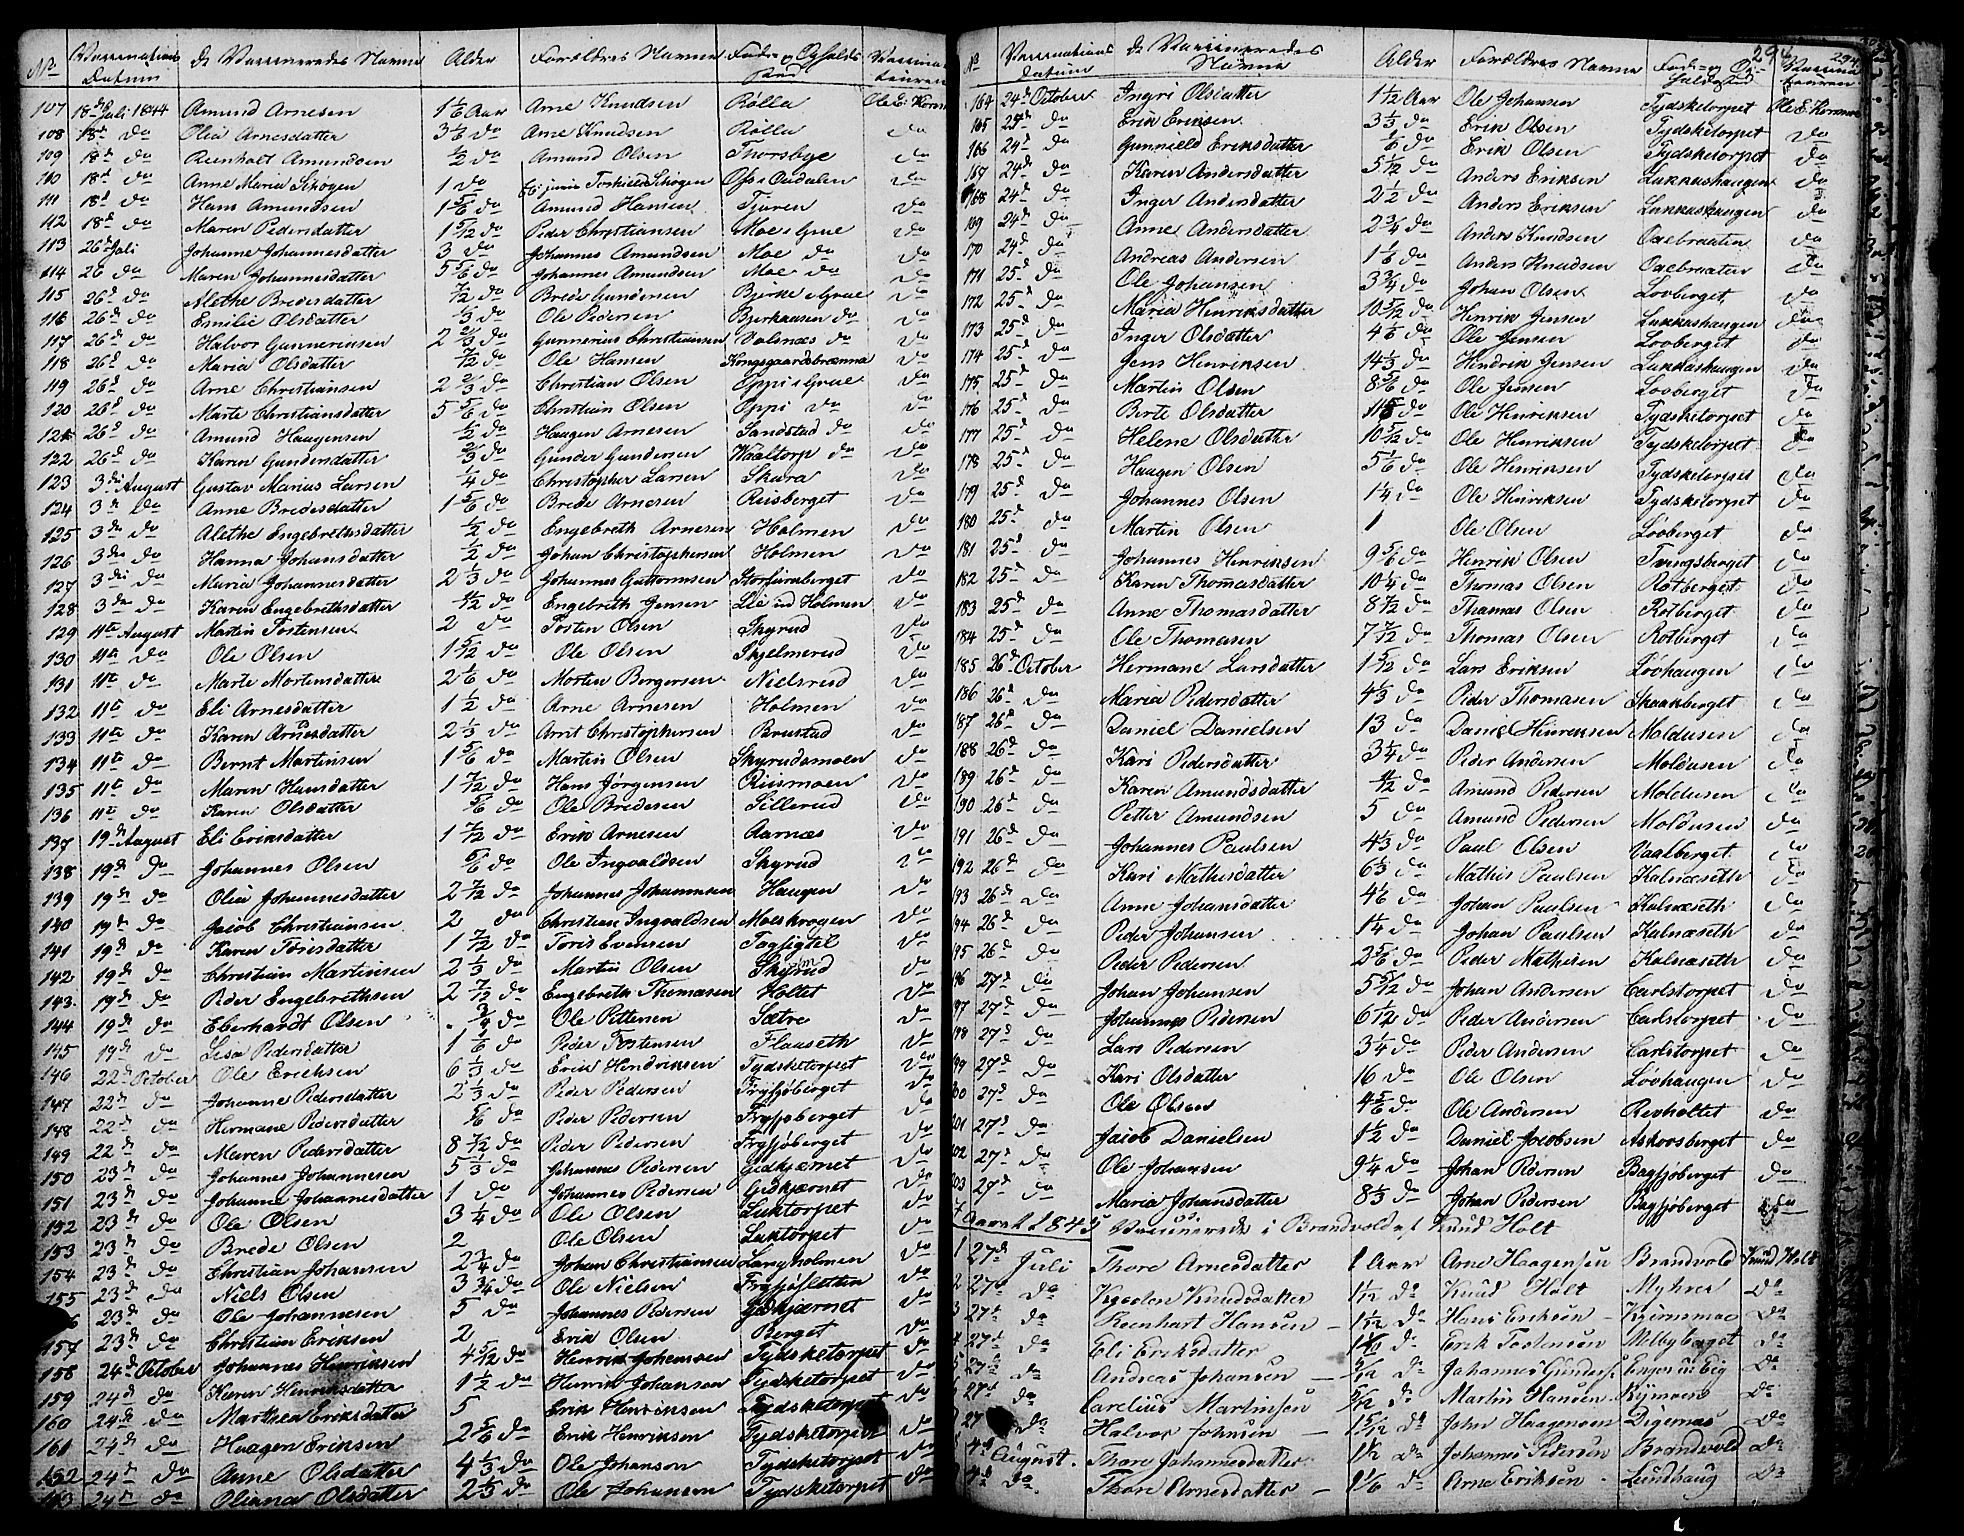 No Vaccinations Datum De Vaccineredes Navne Alder Forældres Navne Føde- og Opholds Sted
107 18d Juli 1844 Amund Arnesen 1 1/2 Aar Arne Knudsen Rølla
108 18d do Olea Arnesdatter 3 1/6 do Arne Knudsen Rølla do
109 18d do Reenholt Amundsen 1/2 do Amund Olsen Thorsbye do
110 18d do Anne Maria Schøgen 1 do Torkield Schøgen Oudalen do
111 18d do Hans Amundsen 1 5/6 do Amund Hansen Tjuren do
112 18d do Maren Pedersdatter 1 5/12 do Peder Christiansen Moe i Grue do
113 26d Juli Johanne Johannesdatter 3 do Johannes Amundsen Moe do do
114 26 do Maren Johannesdatter 5 5/6 do Johannes Amundsen Moe do do
115 26d do Alethe Bredesdatter 7/12 do Brede Gundersen Bjerke i Grue do
116 26d do Emilie Olsdatter 1/3 do Ole Pedersen Bjerkaasen do do
117 26d do Halvor Gunnerusen 2 2/3 do Gunnerius Christiansen Volsnæs do do
118 26d do Maria Olsdatter 7/12 do Ole Hansen Kongsgaardsbrænna do
119 26d do Arne Christiansen 2 2/3 do Christian Olsen Oppi i Grue do
120 26d do Marte Christiansdatter 5 5/6 do Christian Olsen Oppi do do
121 26d do Amund Haagensen 1/2 do Haagen Arnesen Sandstad do do
122 26d do Karen Gundersdatter 2/3 do Gunder Gundersen Waaltorp do do
123 3die August Gustav Marius Larsen 1/4 do Christopher Larsen Skara do
124 3di do Anne Bredesdatter 1 5/6 do Brede Arnesen Ruisberget do
125 3die do Alethe Engebrethsdatter 1/2 do Engebreth Arnesen Holmen do
126 3die do Hanna Johansdatter 1/2 do Johan Christophersen Holmen do
127 3die do Maria Johannesdatter 2 1/3 do Johannes Guttormsen Storfuruberget do
128 3die do Karen Engebrethsdatter 11/12 do Engebreth Jensen Lie ud Holmen do
129 11te August Martin Tostensen 2 do Tosten Olsen Skyrud do
130 11te do Ole Olsen 1 5/12 do Ole Olsen Skjelmerud do
131 11te do Marte Mortensdatter 2 1/6 do Morten Borgersen Nielsrud do
132 11te do Eli Arnesdatter 1 1/2 do Arne Arnesen Holmen do
133 11te do Karen Arnesdatter 2 1/3 do Arnt Christophersen Brustad do
134 11te do Bernt Martinsen 1 5/6 do Martin Olsen Skyrudsmoen do
135 11te do Maren Hansdatter 1 7/12 do Hans Jørgensen Riismoen do
136 11te do Karen Olsdatter 5/6 do Ole Bredesen Sillerud do
137 19d August Eli Eriksdatter 1 7/12 do Erik Arnesen Aarnæs do
138 19d do Johannes Olsen 5/6 do Ole Ingvaldsen Skyrud do
139 19d do Olea Johannesdatter 2 7/12 do Johannes Johannesen Haugen do
140 19d do Jacob Christiansen 2 do Christian Ingvaldsen Moeskrogen do
141 19d do Karen Torisdatter 1 7/12 do Toris Evensen do
142 19d do Christian Martinsen 2 1/3 do Martin Olsen Skyrud do
143 19d do Peder Engebrethsen 2 7/12 do Engebreth Thomassen Holtet do
144 19d do Eberhardt Olsen 3/4 do Ole Pettersen Sætre do
145 19d do Lisa Pedersdatter 1 1/6 do Peder Tostensen Flaaseth do
146 22d October Ole Erichsen 6 1/3 do Erik Hendriksen Tydsketorpet do
147 22d do Johanne Pedersdatter 2 1/3 do Peder Pedersen Frysjøberget do
148 22d do Hermane Pedersdatter 5/6 do Peder Pedersen Frysjøberget do
149 22 do Maren Pedersdatter 8 5/12 do Peder Pedersen Frysjøberget do
150 23d do Johannes Johannesen 5 1/3 do Johannes Pedersen Gjedkjærnet do
151 23d do Johanna Johannesdatter 1 do Johannes Pedersen Gjedkjærnet do
152 23d do Ole Olsen 3 1/4 do Ole Olsen Luktorpet do
153 23d do Brede Olsen 2 Ole Olsen Luktorpet do
154 23d do Christian Johansen 2 3/4 do Johan Christiansen Langholmen do
155 23d do Niels Olsen 3 3/4 do Ole Nielsen do
23d do Ole Johannesen 5 do Johannes Pedersen Gjedkjærnet do
157 23d do Christian Eriksen 2 Erik Olsen Berget do
158 24d October Johannes Henriksen 4 5/12 do Henrik Johansen Tydsketorpet do
159 24d do Karen Henriksdatter 1 1/2 do Henrik Johansen Tydsketorpet do
160 24d do Marthea Eriksdatter 5 Erik Henriksen Tydsketorpet do
161 24d do Haagen Eriksen 2 5/6 do Erik Henriksen Tydsketorpet do
162 24d do Anne Olsdatter 4 1/3 do Ole Johansen Tydsketorpet do
163 24d do Oleana Olsdatter 2 1/3 do Ole Johansen Tydsketorpet do
294 294
No Vaccinations Datum De Vaccineredes Navne Alder Forældres Navne Føde- og Opholdssted
164 24d October Ingri Olsdatter 1 1/2 Aar Ole Johansen Tydsketorpet
165 24d do Erik Eriksen 3 1/3 do Erik Olsen Tydsketorpet do
166 24d do Gunnield Eriksdatter 1/6 do Erik Olsen Tydsketorpet do
167 24d do Karen Andersdatter 5 1/2 do Anders Eriksen Lukkashaugen do
168 24d do Inger Andersdatter 2 1/2 do Anders Eriksen Lukkashaugen do
169 24d do Anne Andersdatter 2 3/4 do Anders Knudsen Oxebraaten do
170 24d do Andreas Andersen 1 1/6 do Anders Knudsen Oxebraaten do
171 25d do Ole Johansen 3 3/4 do Johan Olsen Lovberget do
172 25d do Maria Henriksdatter 10 5/12 do Henrik Jensen Lukkashaugen do
173 25d do Inger Olsdatter 4 1/6 do Ole Jensen Lovberget do
174 25d do Jens Henriksen 14 1/3 do Hendrik Jensen Lukkashaugen do
175 25d do Martin Olsen 8 5/6 do Ole Jensen Lovberget do
176 25d do Berte Olsdatter do Ole Henriksen Tydsketorpet do
177 25d do Helene Olsdatter 10 5/12 do Ole Henriksen Tydsketorpet do
178 25d do Haagen Olsen 5 1/6 do Ole Henriksen Tydsketorpet do
179 25d do Johannes Olsen 1 1/4 do Ole Henriksen Tydsketorpet do
180 25d do Martin Olsen 1 Ole Olsen Lovberget do
181 25d do Johannes Henriksen 9 5/6 do Henrik Olsen Tvengsberget do
182 25d do Karen Thomasdatter 10 1/4 do Thomas Olsen Rotberget do
183 25d do Anne Thomasdatter 8 7/12 do Thomas Olsen Rotberget do
184 25d do Ole Thomasen 7 7/12 do Thomas Olsen Rotberget do
185 26d October Hermane Larsdatter 1 5/12 do Lars Eriksen Lövhaugen do
186 26d do Maria Pedersdatter 4 1/3 do Peder Thomasen Skaakberget do
187 26d do Daniel Danielsen 13 do Daniel Hinriksen Moldusen do
188 26d do Kari Pedersdatter 3 1/4 do Peder Andersen Moldusen do
189 26d do Karen Amundsdatter 11/12 do Amund Pedersen Moldusen do
190 26d do Petter Amundsen 5 do Amund Pedersen Moldusen do
191 26d do Johannes Paulsen 4 1/3 do Paul Olsen Vaalberget do
192 26d do Kari Mathisdatter 6 1/3 do Mathis Paulsen Kalnæseth do
93 26d do Anne Johansdatter 4 1/6 do Johan Paulsen Kalnæseth do
94 26d do Peder Johansen 1 1/4 do Johan Paulsen Kalnæseth do
95 26d do Peder Pedersen 2 5/6 do Peder Mathisen Kalnæseth do
96 27d do Johan Johansen 5 5/12 do Johan Andersen Carlstorpet do
97 27d do Johannes Pedersen 6 1/4 do Peder Andersen Carlstorpet do
98 27d do Lars Pedersen 3 1/4 do Peder Andersen Carlstorpet do
99 27d do Kari Olsdatter 16 do Ole Olsen Lövhaugen do
00 27d do Ole Olsen 4 5/6 do Ole Andersen Revholtet do
01 27d do Jacob Danielsen 1 1/2 do Daniel Jacobsen Askoosberget do
02 27d do Ole Johansen 9 1/4 do Johan Pedersen Bagsjøberget do
03 27d do Maria Johansdatter 8 1/3 do Johan Pedersen Bagsjøberget do
Aaret 1845 Vaccinerede i Brandvold af Knud Holt
1 27d Juli Thore Arnesdatter 1 Aar Arne Haagensen Brandvold Knud Holt
2 27d do Knudsdatter 1 1/12 do Knud Holt Myhrer do
3 27d do Reenhart Hansen 1 1/12 do Hans Eriksen do
4 27d do Eli Eriksdatter do Erik Tostensen do
5 27d do Andreas Johansen 5/12 do Johannes do
27d do Carelius Martinsen 5/12 do Martin Hansen do
27 do Halvor Johnsen 1 5/12 do John Haagensen Digernæs do
4d August Thore Johannesdatter 1 1/2 do Johannes Pedersen Brandvold do
4d do Thore Arnesdatter 1 1/6 do Arne Eriksen Lundhaug do